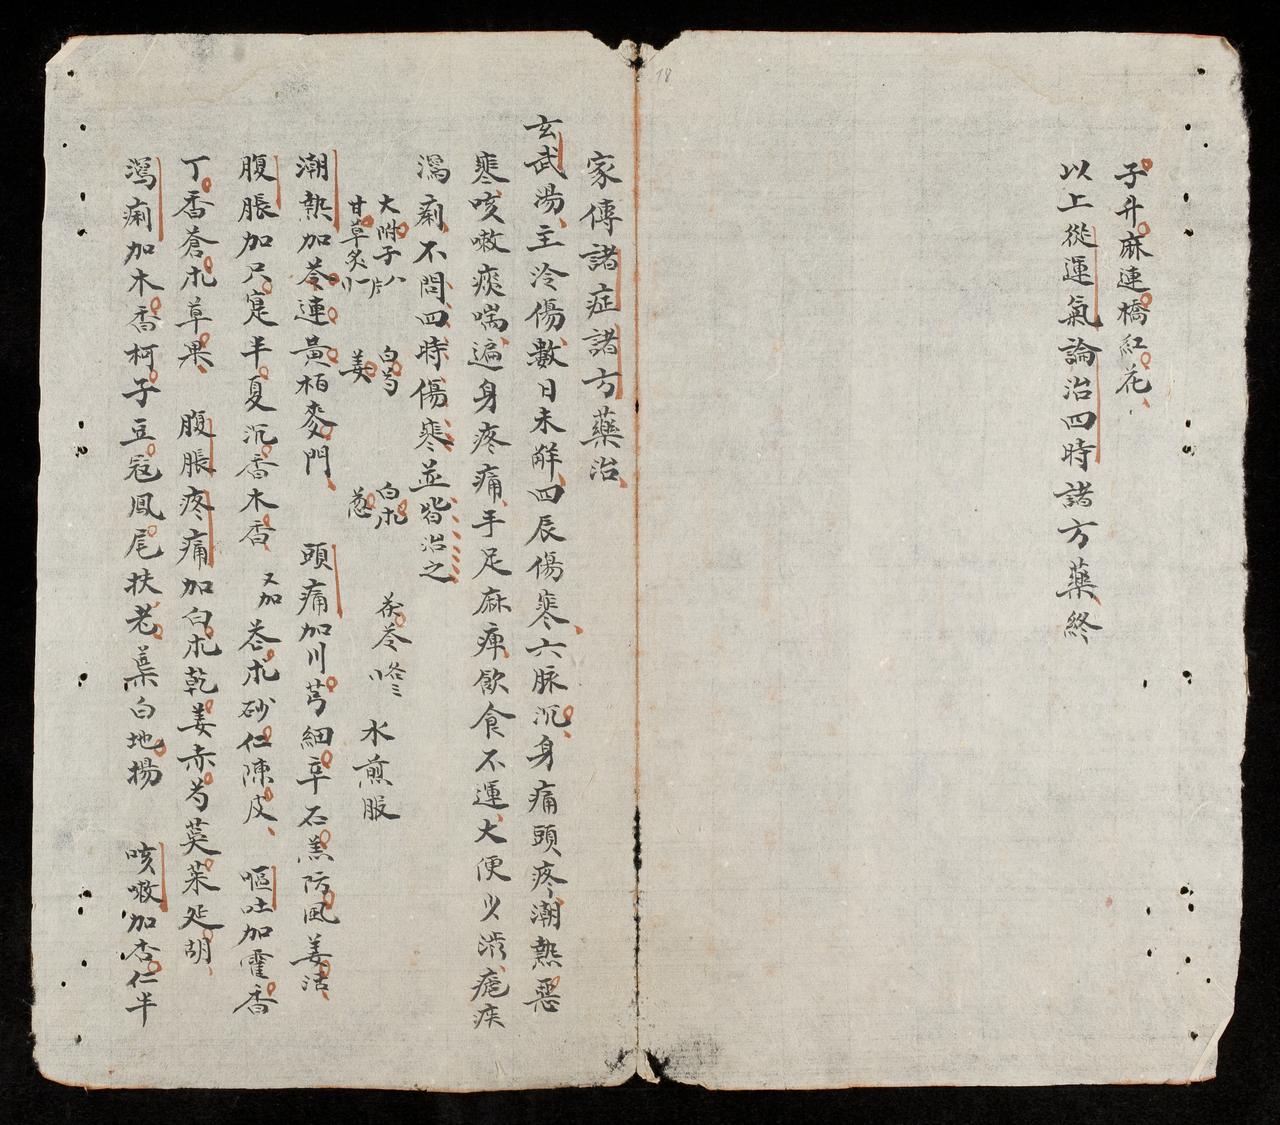 子升麻連橋紅花
以上從運氣論治四時諸方藥終
18
家傳諸症諸方藥治
玄武湯主冷傷數日未解四辰傷寒六脉沉身痛頭疼潮熱惡
寒咳嗽痰喘遍身疼痛手足麻痺飲食不運大便少澁瘧疾
瀉痢不問四時傷寒並皆治之
大附子八片 白芍 白朮 茯苓各三
甘草炙一 姜 葱 水煎服
潮熱加芩連黃栢麥門 頭痛加川芎細辛石羔防風羗活
腹脹加只寔半夏沉香木香 又加苍朮砂仁陳皮 嘔吐加霍香
丁香蒼朮草果 腹脹疼痛加白朮乾姜赤芍莪茱延胡
瀉痢加木香柯子豆寇鳳尾扶老葉白地揚 咳嗽加杏仁半